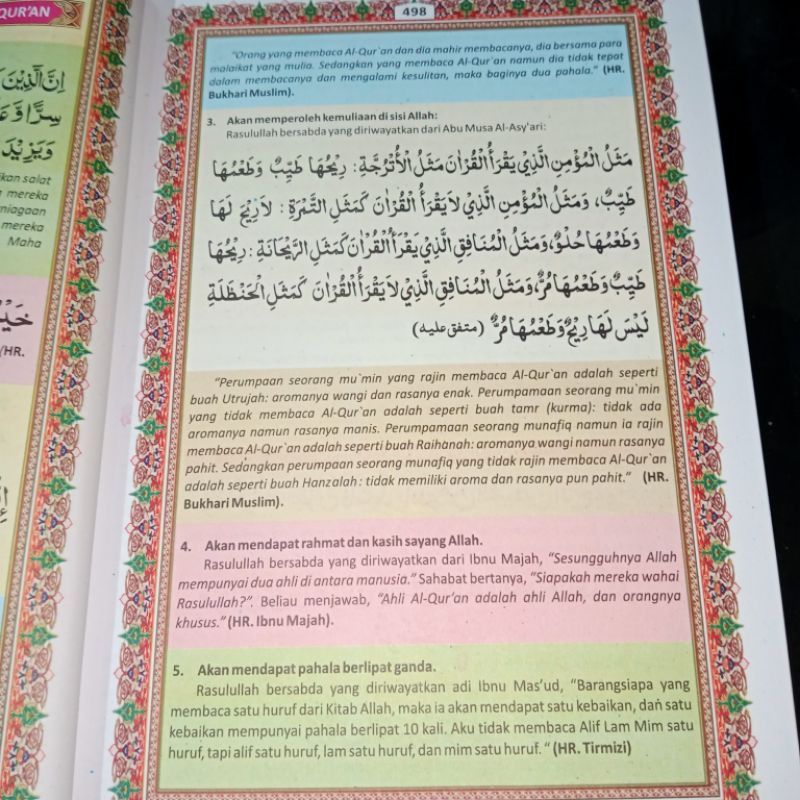 QUR'AN
إِنَّ الَّذِيْنَ
سِرًّا وَّعَ
وَيَزِيْدَ
kan salat
mereka
niagaan
mereka
Maha
خَيْرُ
(HR.
498
"Orang yang membaca Al-Qur`an dan dia mahir membacanya, dia bersama para
malaikat yang mulia. Sedangkan yang membaca Al-Qur`an namun dia tidak tepat
dalam membacanya dan mengalami kesulitan, maka baginya dua pahala." (HR.
Bukhari Muslim).
3. Akan memperoleh kemuliaan di sisi Allah:
Rasulullah bersabda yang diriwayatkan dari Abu Musa Al-Asy'ari:
مَثَلُ الْمُؤْمِنِ الَّذِيْ يَقْرَأُ الْقُرْاٰنَ مَثَلُ الْأُتْرُجَّةِ: رِيْحُهَا طَيِّبٌ وَطَعْمُهَا
طَيِّبٌ، وَمَثَلُ الْمُؤْمِنِ الَّذِيْ لَا يَقْرَأُ الْقُرْاٰنَ كَمَثَلِ التَّمْرَةِ: لَا رِيْحَ لَهَا
وَطَعْمُهَا حُلْوٌ، وَمَثَلُ الْمُنَافِقِ الَّذِيْ يَقْرَأُ الْقُرْاٰنَ كَمَثَلِ الرَّيْحَانَةِ: رِيْحُهَا
طَيِّبٌ وَطَعْمُهَا مُرٌّ، وَمَثَلُ الْمُنَافِقِ الَّذِيْ لَا يَقْرَأُ الْقُرْاٰنَ كَمَثَلِ الْحَنْظَلَةِ
لَيْسَ لَهَا رِيْحٌ وَطَعْمُهَا مُرٌّ (متفق عليه)
"Perumpaan seorang mu`min yang rajin membaca Al-Qur`an adalah seperti
buah Utrujah: aromanya wangi dan rasanya enak. Perumpamaan seorang mu`min
yang tidak membaca Al-Qur`an adalah seperti buah tamr (kurma): tidak ada
aromanya namun rasanya manis. Perumpamaan seorang munafiq namun ia rajin
membaca Al-Qur`an adalah seperti buah Raihanah: aromanya wangi namun rasanya
pahit. Sedangkan perumpaan seorang munafiq yang tidak rajin membaca Al-Qur`an
adalah seperti buah Hanzalah: tidak memiliki aroma dan rasanya pun pahit." (HR.
Bukhari Muslim).
4. Akan mendapat rahmat dan kasih sayang Allah.
Rasulullah bersabda yang diriwayatkan dari Ibnu Majah, "Sesungguhnya Allah
mempunyai dua ahli di antara manusia." Sahabat bertanya, "Siapakah mereka wahai
Rasulullah?". Beliau menjawab, "Ahli Al-Qur'an adalah ahli Allah, dan orangnya
khusus." (HR. Ibnu Majah).
5. Akan mendapat pahala berlipat ganda.
Rasulullah bersabda yang diriwayatkan adi Ibnu Mas'ud, "Barangsiapa yang
membaca satu huruf dari Kitab Allah, maka ia akan mendapat satu kebaikan, dan satu
kebaikan mempunyai pahala berlipat 10 kali. Aku tidak membaca Alif Lam Mim satu
huruf, tapi alif satu huruf, lam satu huruf, dan mim satu huruf. " (HR. Tirmizi)